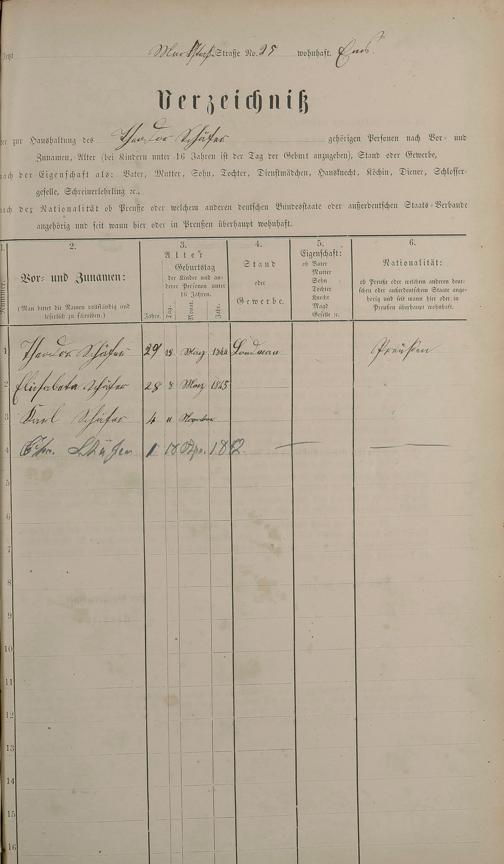 Jetzt Straße No. 25 wohnhaft. Ems.
Verzeichniß
der zur Haushaltung des Theodor Schäfer gehörigen Personen nach Vor- und
Zunamen, Alter (bei Kindern unter 16 Jahren ist der Tag der Geburt anzugeben), Stand oder Gewerbe,
nach der Eigenschaft als: Vater, Mutter, Sohn, Tochter, Dienstmädchen, Hausknecht, Köchin, Diener, Schlosser-
geselle, Schreinerlehrling ꝛc.,
nach der Nationalität ob Preuße oder welchem anderen deutschen Bundesstaate oder außerdeutschen Staats-Verbande
angehörig und seit wann hier oder in Preußen überhaupt wohnhaft.
1.
Nummer.
2.
Vor- und Zunamen:
(Man bittet die Namen vollständig und
leserlich zu schreiben.)
3.
Alter
Geburtstag
der Kinder und an-
derer Personen unter
16 Jahren.
Jahre. Tag. Monat. Jahr.
4.
Stand
oder
Gewerbe.
5.
Eigenschaft:
ob Vater
Mutter
Sohn
Tochter
Knecht
Magd
Geselle ꝛc.
6.
Nationalität:
ob Preuße oder welchem anderen deut-
schen oder außerdeutschen Staate ange-
hörig und seit wann hier oder in
Preußen überhaupt wohnhaft.
1 Theodor Schäfer 29 März Landman Preußen
2 Elisabeta Schäfer 28 8 März 1845
3 Karl Schäfer 4 11 November
4 Schäfer 1 18
5
6
7
8
9
10
11
12
13
14
15
16